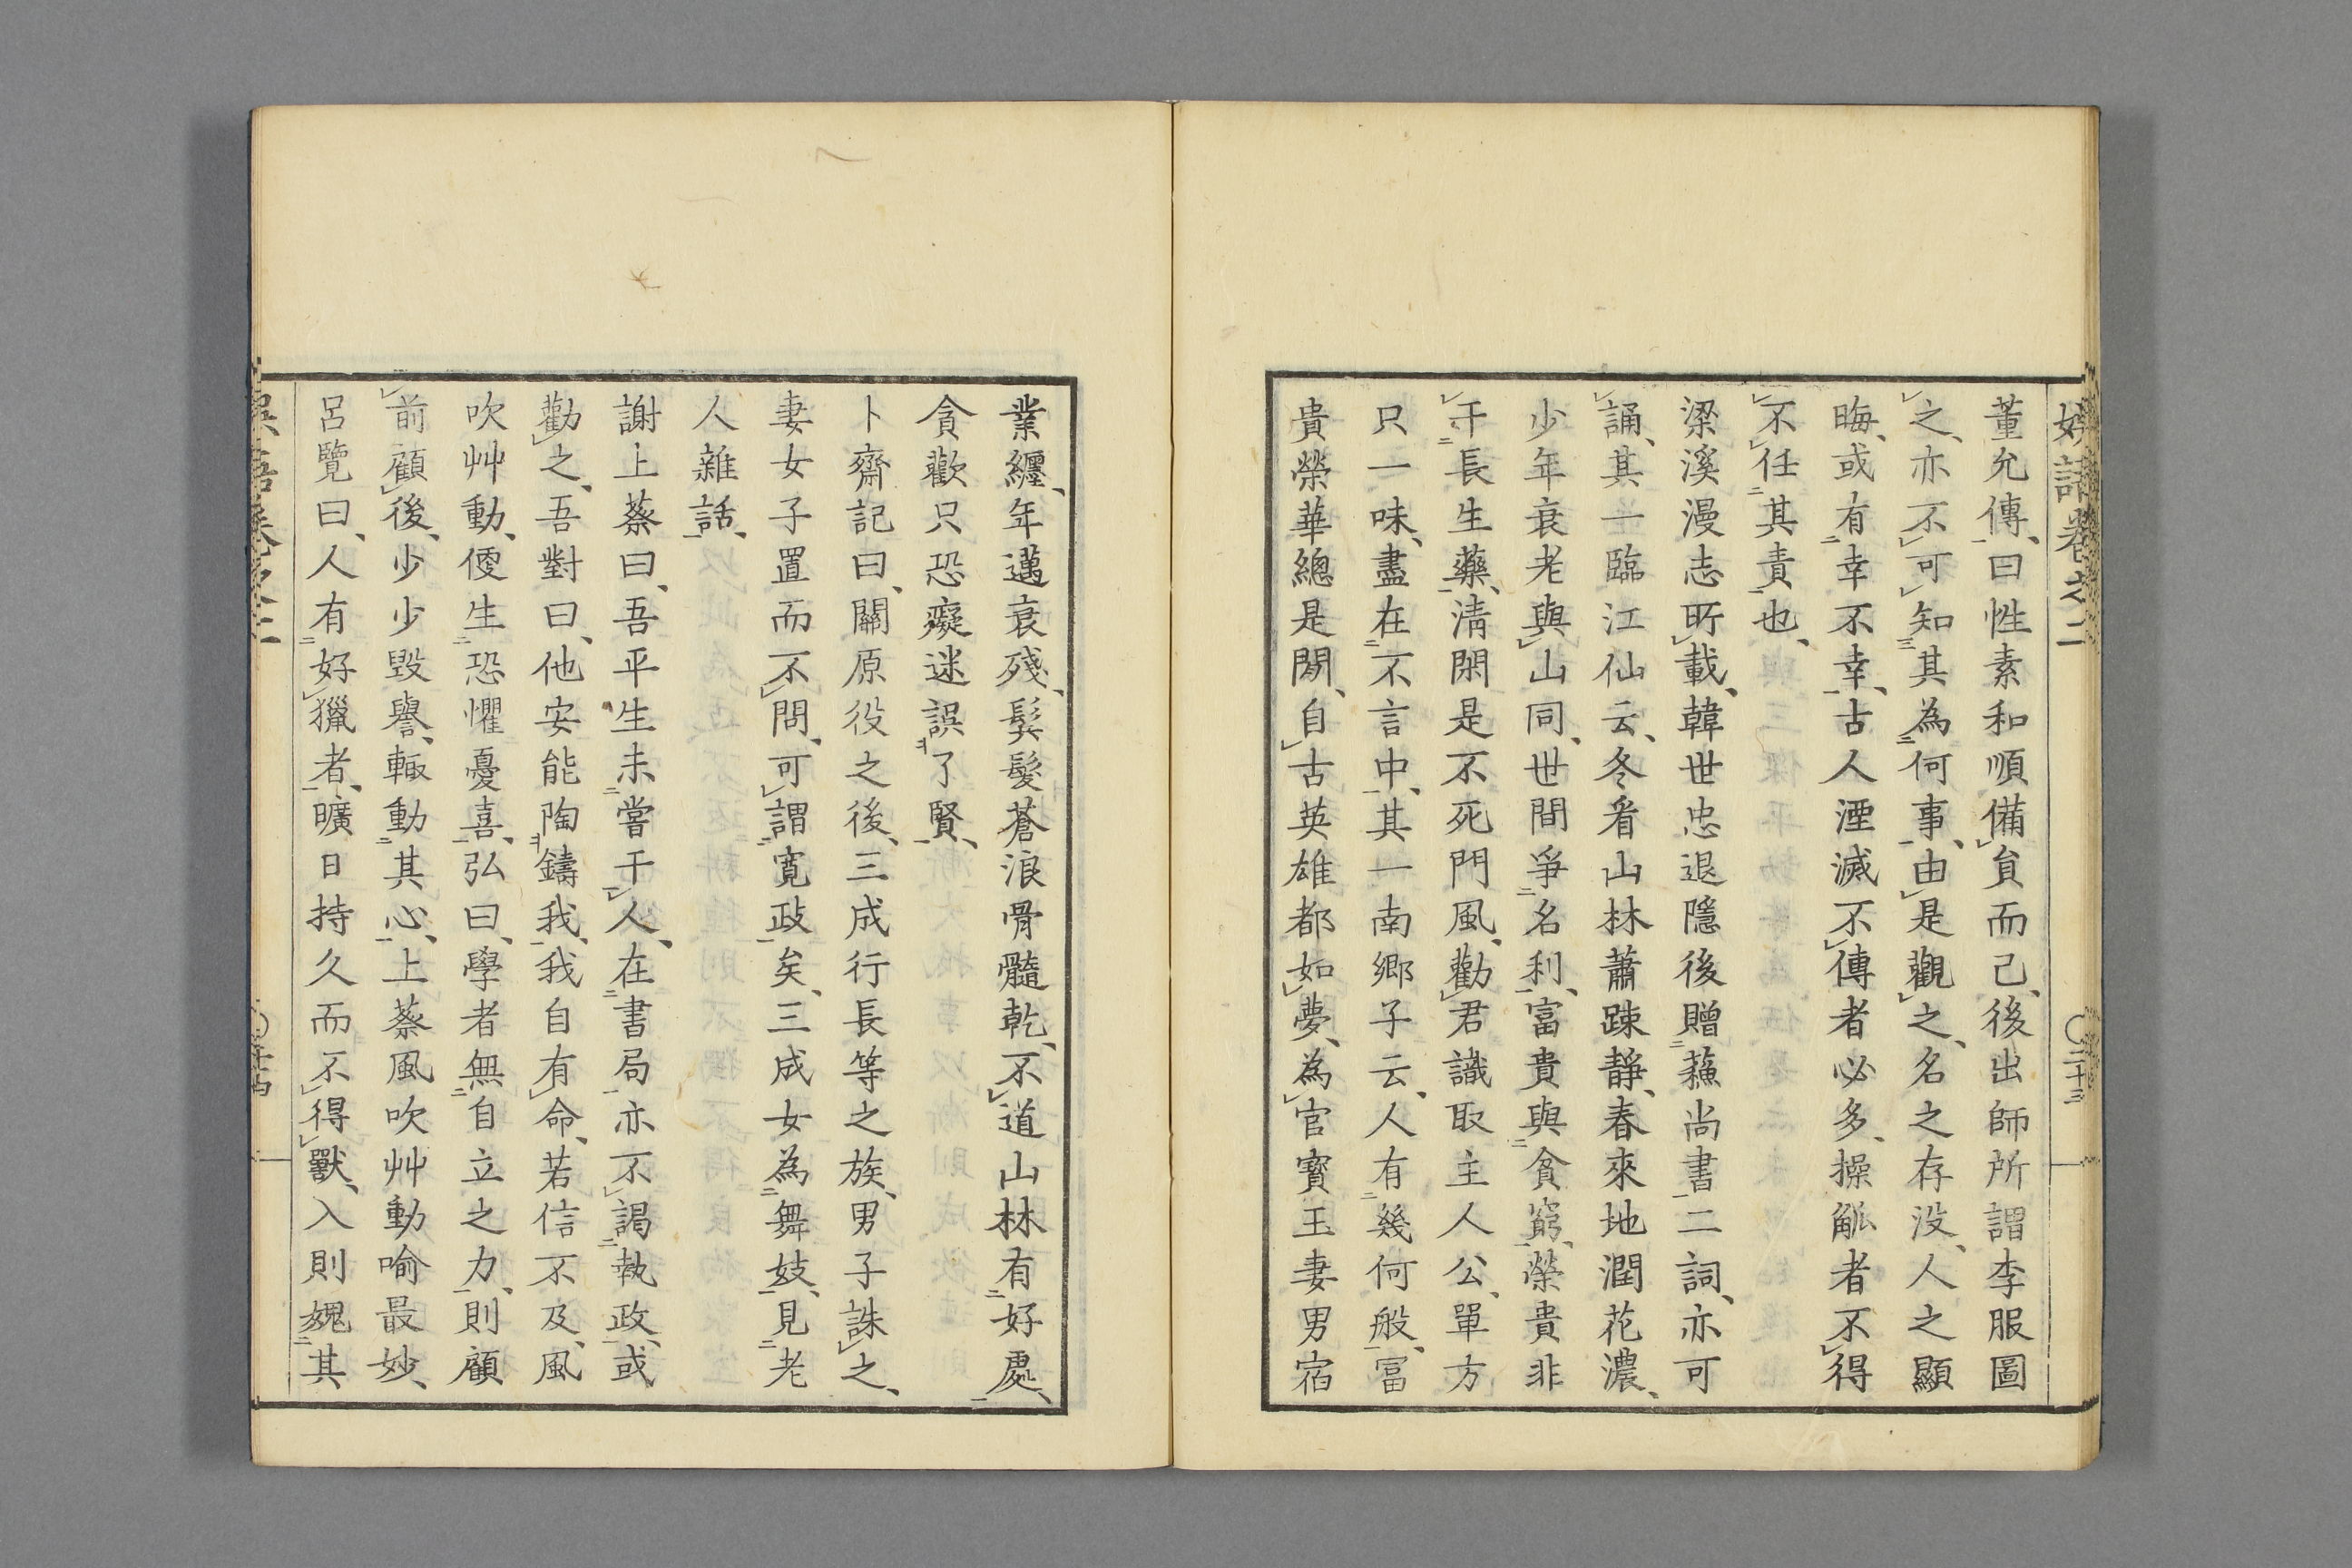 董允傳曰性素和順備負而已後出師所謂李服圖
之亦不可知其為何事由是觀之名之存没人之顯
晦或有幸不幸古人湮滅不傳者必多操觚者不得
不任其責也
梁溪漫志所載韓世忠退隱後贈蘓尚書二詞亦可
誦其一臨江仙云冬看山林蕭踈静春來地潤花濃
少年衰老與山同世間爭名利富貴與貧窮榮貴非
干長生藥清閑是不死門風勸君識取主人公單方
只一味盡在不言中其一南鄉子云人有幾何般冨
貴榮華總是閑自古英雄都如夢為官寳玉妻男宿
卷之二
二十三
業纏年邁衰殘鬂髮蒼浪骨髓乾不道山林有好處
貪歡只恐癡迷誤了賢
卜齋記曰關原役之後三成行長等之族男子誅之
妻女子置而不問可謂寛政矣三成女為舞妓見老
人雜話
謝上蔡曰吾平生未嘗干人在書局亦不謁執政或
勸之吾對曰他安能陶鑄我我自有命若信不及風
吹艸動便生恐懼憂喜弘曰學者無自立之力則顧
前顧後少少毀譽輙動其心上蔡風吹艸動喻最妙
呂覽曰人有好獵者曠日持久而不得獸入則媿其